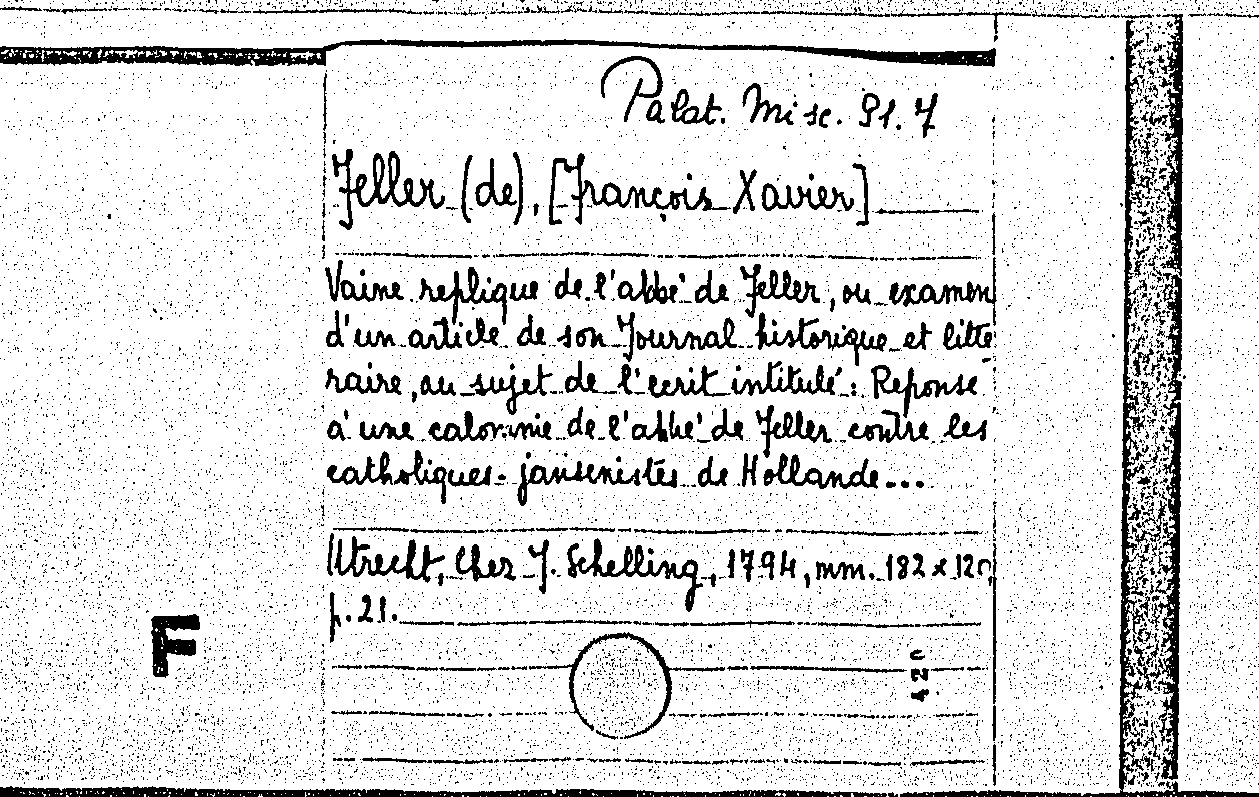 Palat. Misc. 91.7
Feller (de), [François Xavier]
Vaine replique de l'abbé de Feller, ou examen
d'un article de son Journal historique et litte
raire, au sujet de l'ecrit intitulé: Reponse
à une calomnie de l'abbé de Feller contre les
catholiques-jansenistes de Hollande...
Utrecht, Chez J. Schelling, 1794, mm. 182 x 120,
p. 21.
F
420